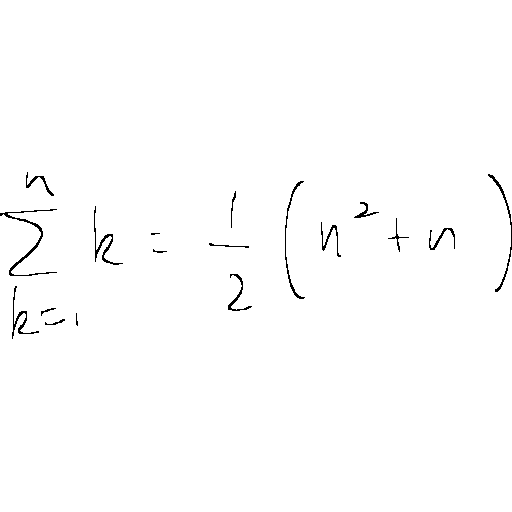 \sum_{k=1}^{n} k = \frac{1}{2} \left( n^2 + n \right)